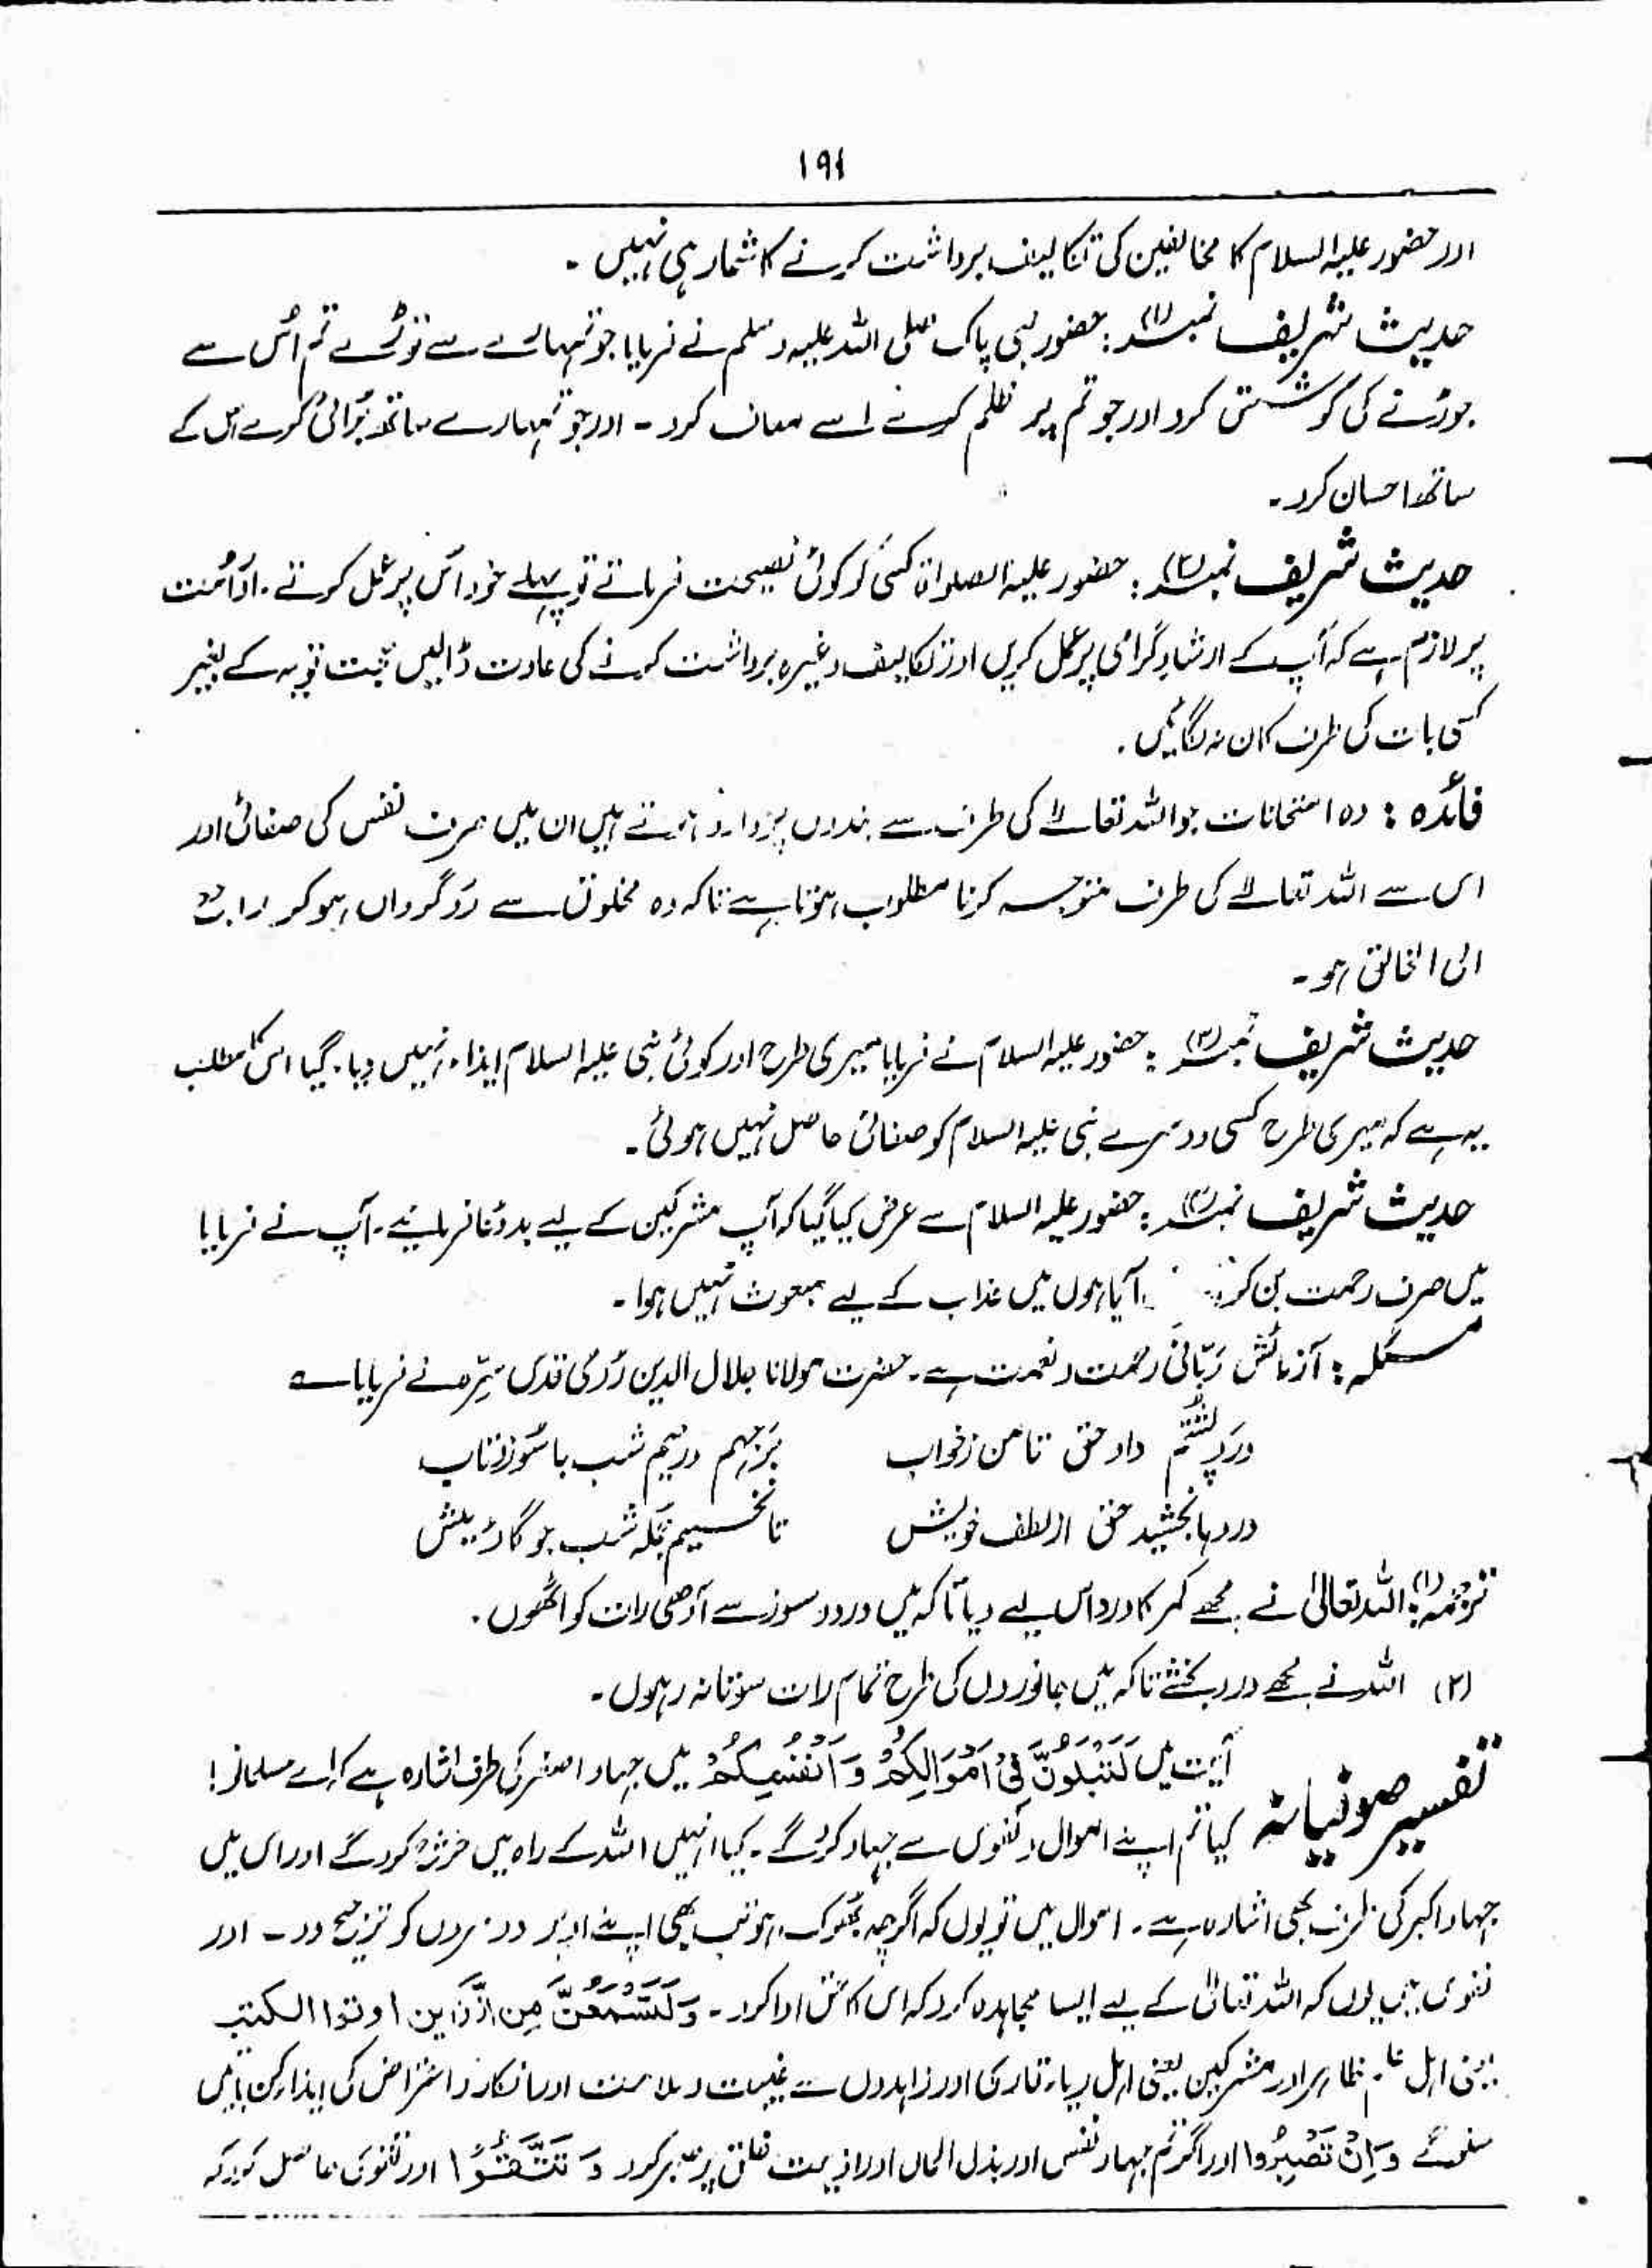 ۱۹۱
اور حضور علیہ السلام کا مخالفین کی تکالیف برداشت کرنے کا شمار ہی نہیں ۔
حدیث شریف نمبر (۱) : حضور نبی پاک صلی اللہ علیہ وسلم نے فرمایا جو تمہارے سے توڑے تم اُس سے
جوڑنے کی کوشش کرو اور جو تم پر ظلم کرے اسے معاف کرو ۔ اور جو تمہارے ساتھ بُرائی کرے اس کے
ساتھ احسان کرو ۔
حدیث شریف نمبر (۲) : حضور علیہ الصلواۃ کسی کو کوئی نصیحت فرماتے تو پہلے خود اُس پر عمل کرتے ۔ اُمت
پر لازم ہے کہ آپ کے ارشادِ گرامی پر عمل کریں اور تکالیف وغیرہ برداشت کرنے کی عادت ڈالیں توبہ کے بغیر
کسی بات کی طرف کان نہ لگائیں ۔
فائدہ : وہ امتحانات جو اللہ تعالےٰ کی طرف سے بندوں پر وارد ہوتے ہیں ان میں صرف نفس کی صفائی اور
اس سے اللہ تعالےٰ کی طرف متوجہ کرنا مطلوب ہوتا ہے تاکہ وہ مخلوق سے رُوگرواں ہو کر
الی الخالق ہو ۔
حدیث شریف نمبر (۳) : حضور علیہ السلام نے فرمایا میری طرح اور کوئی نبی علیہ السلام ایذاء نہیں دیا ۔ گیا اس کا مطلب
یہ ہے کہ میری طرح کسی دوسرے نبی علیہ السلام کو صفائی حاصل نہیں ہوئی ۔
حدیث شریف نمبر (۴) : حضور علیہ السلام سے عرض کیا گیا کہ آپ مشرکین کے لیے بددُعا فرمائیے ۔ آپ نے فرمایا
میں صرف رحمت بن کر آیا ہوں میں عذاب کے لیے مبعوث نہیں ہوا ۔
مسئلہ : آزمائش رَبّانی رحمت و نعمت ہے ۔ حضرت مولانا جلال الدین رُومی قدس سِرّہ نے فرمایا ؎
دردِ پشتم داد حق تا من زخواب برَجہم در نیم شب با سُوز و تاب
دردہا بخشید حق از لطف خویش تا نخسپم جملہ شب چو گاؤ میش
ترجمہ (۱) : اللہ تعالیٰ نے مجھے کمر کا درد اس لیے دیا تاکہ میں درد و سوز سے آدھی رات کو اٹھوں ۔
(۲) اللہ نے مجھے درد بخشے تاکہ میں جانوروں کی طرح تمام رات سوتا نہ رہوں ۔
تفسیر صوفیانہ آیت میں لَتُبْلَوُنَّ فِیْ اَمْوَالِکُمْ وَ اَنْفُسِکُمْ میں جہاد اصغر کی طرف اشارہ ہے کہ اے مسلمانو !
کیا تم اپنے اموال و نفوس سے جہاد کرو گے ۔ کیا انہیں اللہ کے راہ میں خرچ کرو گے اور اس میں
جہاد اکبر کی طرف بھی اشارہ ہے ۔ اموال میں تو یوں کہ اگرچہ بھوک ہو تب بھی اپنے اوپر دوسروں کو ترجیح دو ۔ اور
نفوس میں یوں کہ اللہ تعالیٰ کے لیے ایسا مجاہدہ کرو کہ اس کا حق ادا کرو ۔ وَلَتَسْمَعُنَّ مِنَ الَّذِیْنَ اوتوا الکتٰب
یعنی اہل علم ظاہر اور مشرکین یعنی اہل ریاء قاری اور زاہدوں سے غیبت و ملامت اور انکار و اعتراض کی ایذارکن باتیں
سنو گے وَ اِنْ تَصْبِرُوا اور اگر تم جہاد نفس اور بذل المال اور اذیت خلق پر صبر کرو وَ تَتَّقُوْا اور تقویٰ حاصل کرو کہ